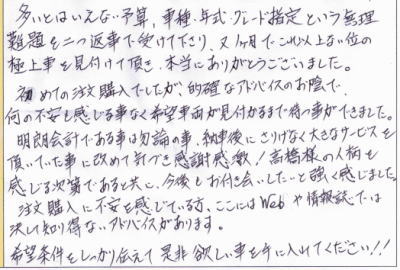 多いとはいえない予算、車種・年式・グレード指定という無理
難題を二つ返事で受けて下さり、又1ヶ月でこれ以上ない位の
極上車を見付けて頂き、本当にありがとうございました。
初めての注文購入でしたが、的確なアドバイスのお陰で、
何の不安も感じる事なく希望車両が見付かるまで待つ事ができました。
明朗会計である事は勿論の事、納車後にさりげなく大きなサービスを
頂いていた事に改めて気づき感謝感激!高橋様の人柄を
感じる次第であると共に、今後もお付き合いしたいと強く感じました。
注文購入に不安を感じている方、ここにはWebや情報誌では
決して知り得ないアドバイスがあります。
希望条件をしっかり伝えて是非欲しい車を手に入れてください!!